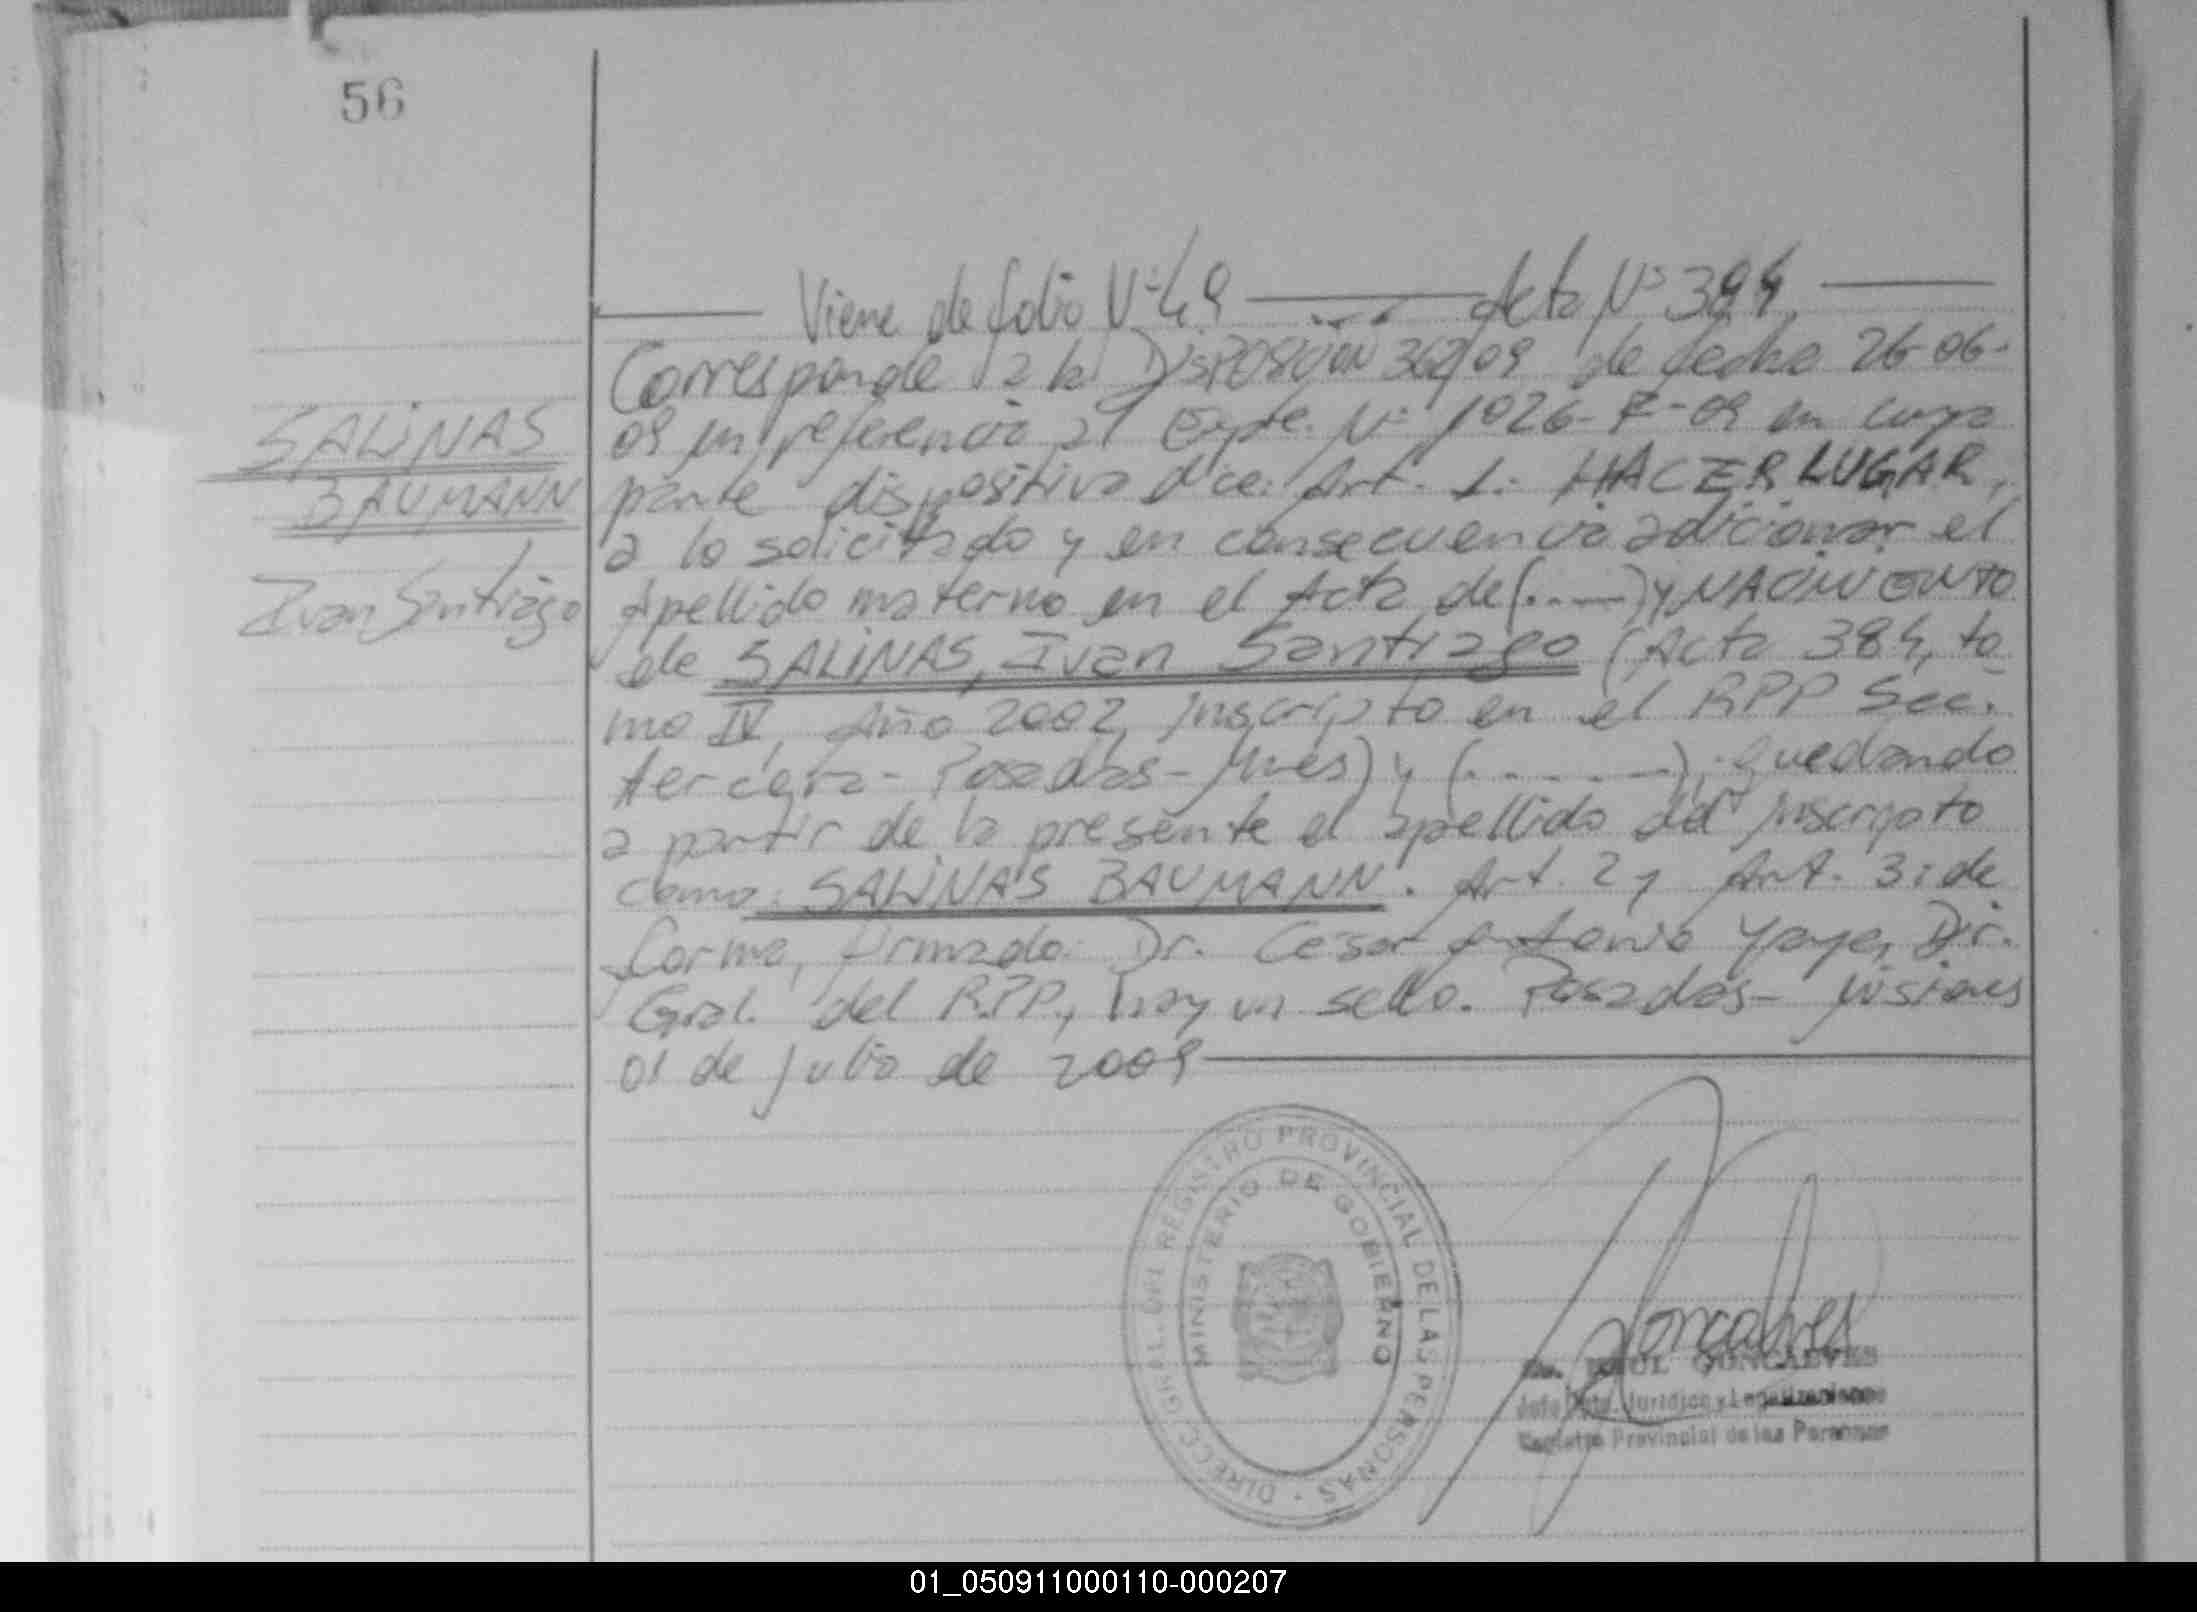 56
Viene de folio Nº 49 Acta Nº 384
Corresponde a la DISPOSICION 362/09 de fecha 26-06-
09 en referencia al Expte. Nº 1026-F-09 en cuya
parte dispositiva dice: Art. 1: HACER LUGAR,
a lo solicitado y en consecuencia adicionar el
Apellido materno en el Acta de (.....) y NACIMIENTO
de SALINAS, Ivan Santiago (Acta 384, to
mo IV, Año 2002, inscripto en el RPP Sec.
tercera- Posadas- Mnes) y (........); quedando
a partir de la presente el apellido del inscripto
como: SALINAS BAUMANN. Art. 2 y Art. 3: de
forma, firmado: Dr. Cesar Antonio Yaye, Dir.
Gral. del R.P.P., hay un sello. Posadas- Misiones
01 de julio de 2009
SALINAS
BAUMANN
Ivan Santiago
DIRECC. GRAL. DEL REGISTRO PROVINCIAL DE LAS PERSONAS
MINISTERIO DE GOBIERNO
Goncalves
RAUL GONCALVES
Jefe Dpto. Jurídico y Legalizaciones
Registro Provincial de las Personas
01_050911000110-000207